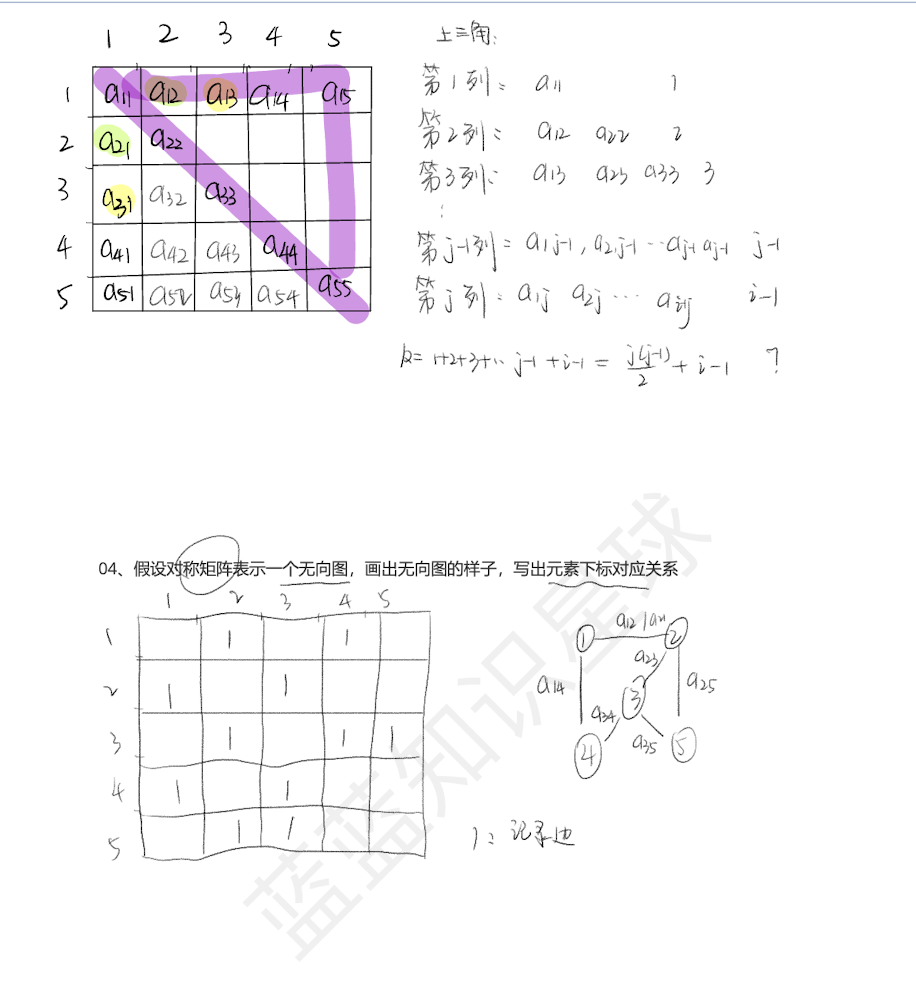 1 2 3 4 5
1 a11 a12 a13 a14 a15
2 a21 a22
3 a31 a32 a33
4 a41 a42 a43 a44
5 a51 a52 a53 a54 a55
上三角:
第1列: a11 1
第2列: a12 a22 2
第3列: a13 a23 a33 3
⋮
第j-1列= a1j-1, a2j-1 ⋯ aj-1 aj-1 j-1
第j列: a1j a2j ⋯ aij i-1
k= 1+2+3+⋯ j-1 + i-1 = j(j-1)/2 + i-1 ?
04、假设对称矩阵表示一个无向图，画出无向图的样子，写出元素下标对应关系
1 2 3 4 5
1 1 1
2 1 1
3 1 1 1
4 1 1
5 1 1
a12/a21
① ②
a23
a14 a25
③
a34 a35
④ ⑤
1: 记录边
蓝蓝知识星球